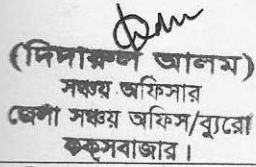 (দিদারুল আলম)
সঞ্চয় অফিসার
জেলা সঞ্চয় অফিস/ব্যুরো
কক্সবাজার।